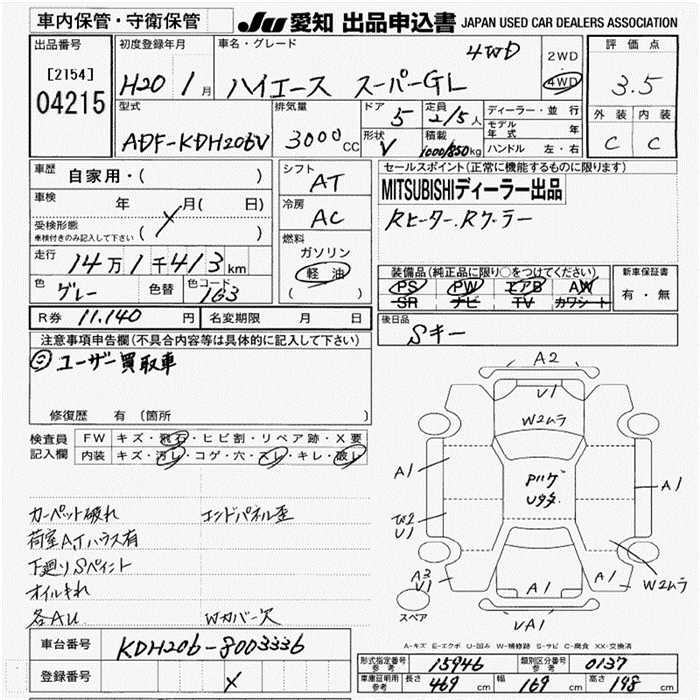 車内保管・守衛保管
JU 愛知 出品申込書 JAPAN USED CAR DEALERS ASSOCIATION
出品番号
[2154]
04215
初度登録年月
H20 1月
車名・グレード
4WD
ハイエース スーパーGL
2WD
4WD
評価点
3.5
外装 内装
C C
型式
ADF-KDH206V
排気量
3000 CC
ドア
5
定員
2/5人
形状
V
積載
1000/850kg
ディーラー・並行
モデル年式 年
ハンドル 左・右
車歴
自家用・( )
車検
年 月( 日)
受検形態
車検付きのみ記入して下さい ( )
走行
14万1千413km
色
グレー
色替
色コード
1G3
R券 11,140円
名変期限 月 日
シフト
AT
冷房
AC
燃料
ガソリン
軽油
( )
セールスポイント(正常に機能するものに限ります)
MITSUBISHIディーラー出品
Rヒーター.Rクーラー
装備品(純正品に限り○をつけてください)
PS PW エアB AW
SR ナビ TV カワシート
新車保証書
有・無
後日品
Sキー
注意事項申告欄(不具合内容等は具体的に記入して下さい)
ユーザー買取車
修復歴 有(箇所 )
検査員記入欄
FW キズ・飛石・ヒビ割・リペア跡・X要
内装 キズ・汚レ・コゲ・穴・スレ・キレ・破レ
カーペット破れ エンドパネル歪
荷室A,Tハラス有
下廻りSペイント
オイルきれ
各AU Wカバー欠
A2
V1
W2ムラ
A1
A1
Pハゲ
U多
W2
U1
A2
V1
A1
A1
W2ムラ
スペア
VA1
A-キズ E-エクボ U-凹み W-補修跡 S-サビ C-腐食 XX-交換済
車台番号 KDH206-8003336
登録番号 X
形式指定番号 参考 15946
類別区分番号 参考 0137
車庫証明用 参考 長さ 469 cm 幅 169 cm 高さ 198 cm